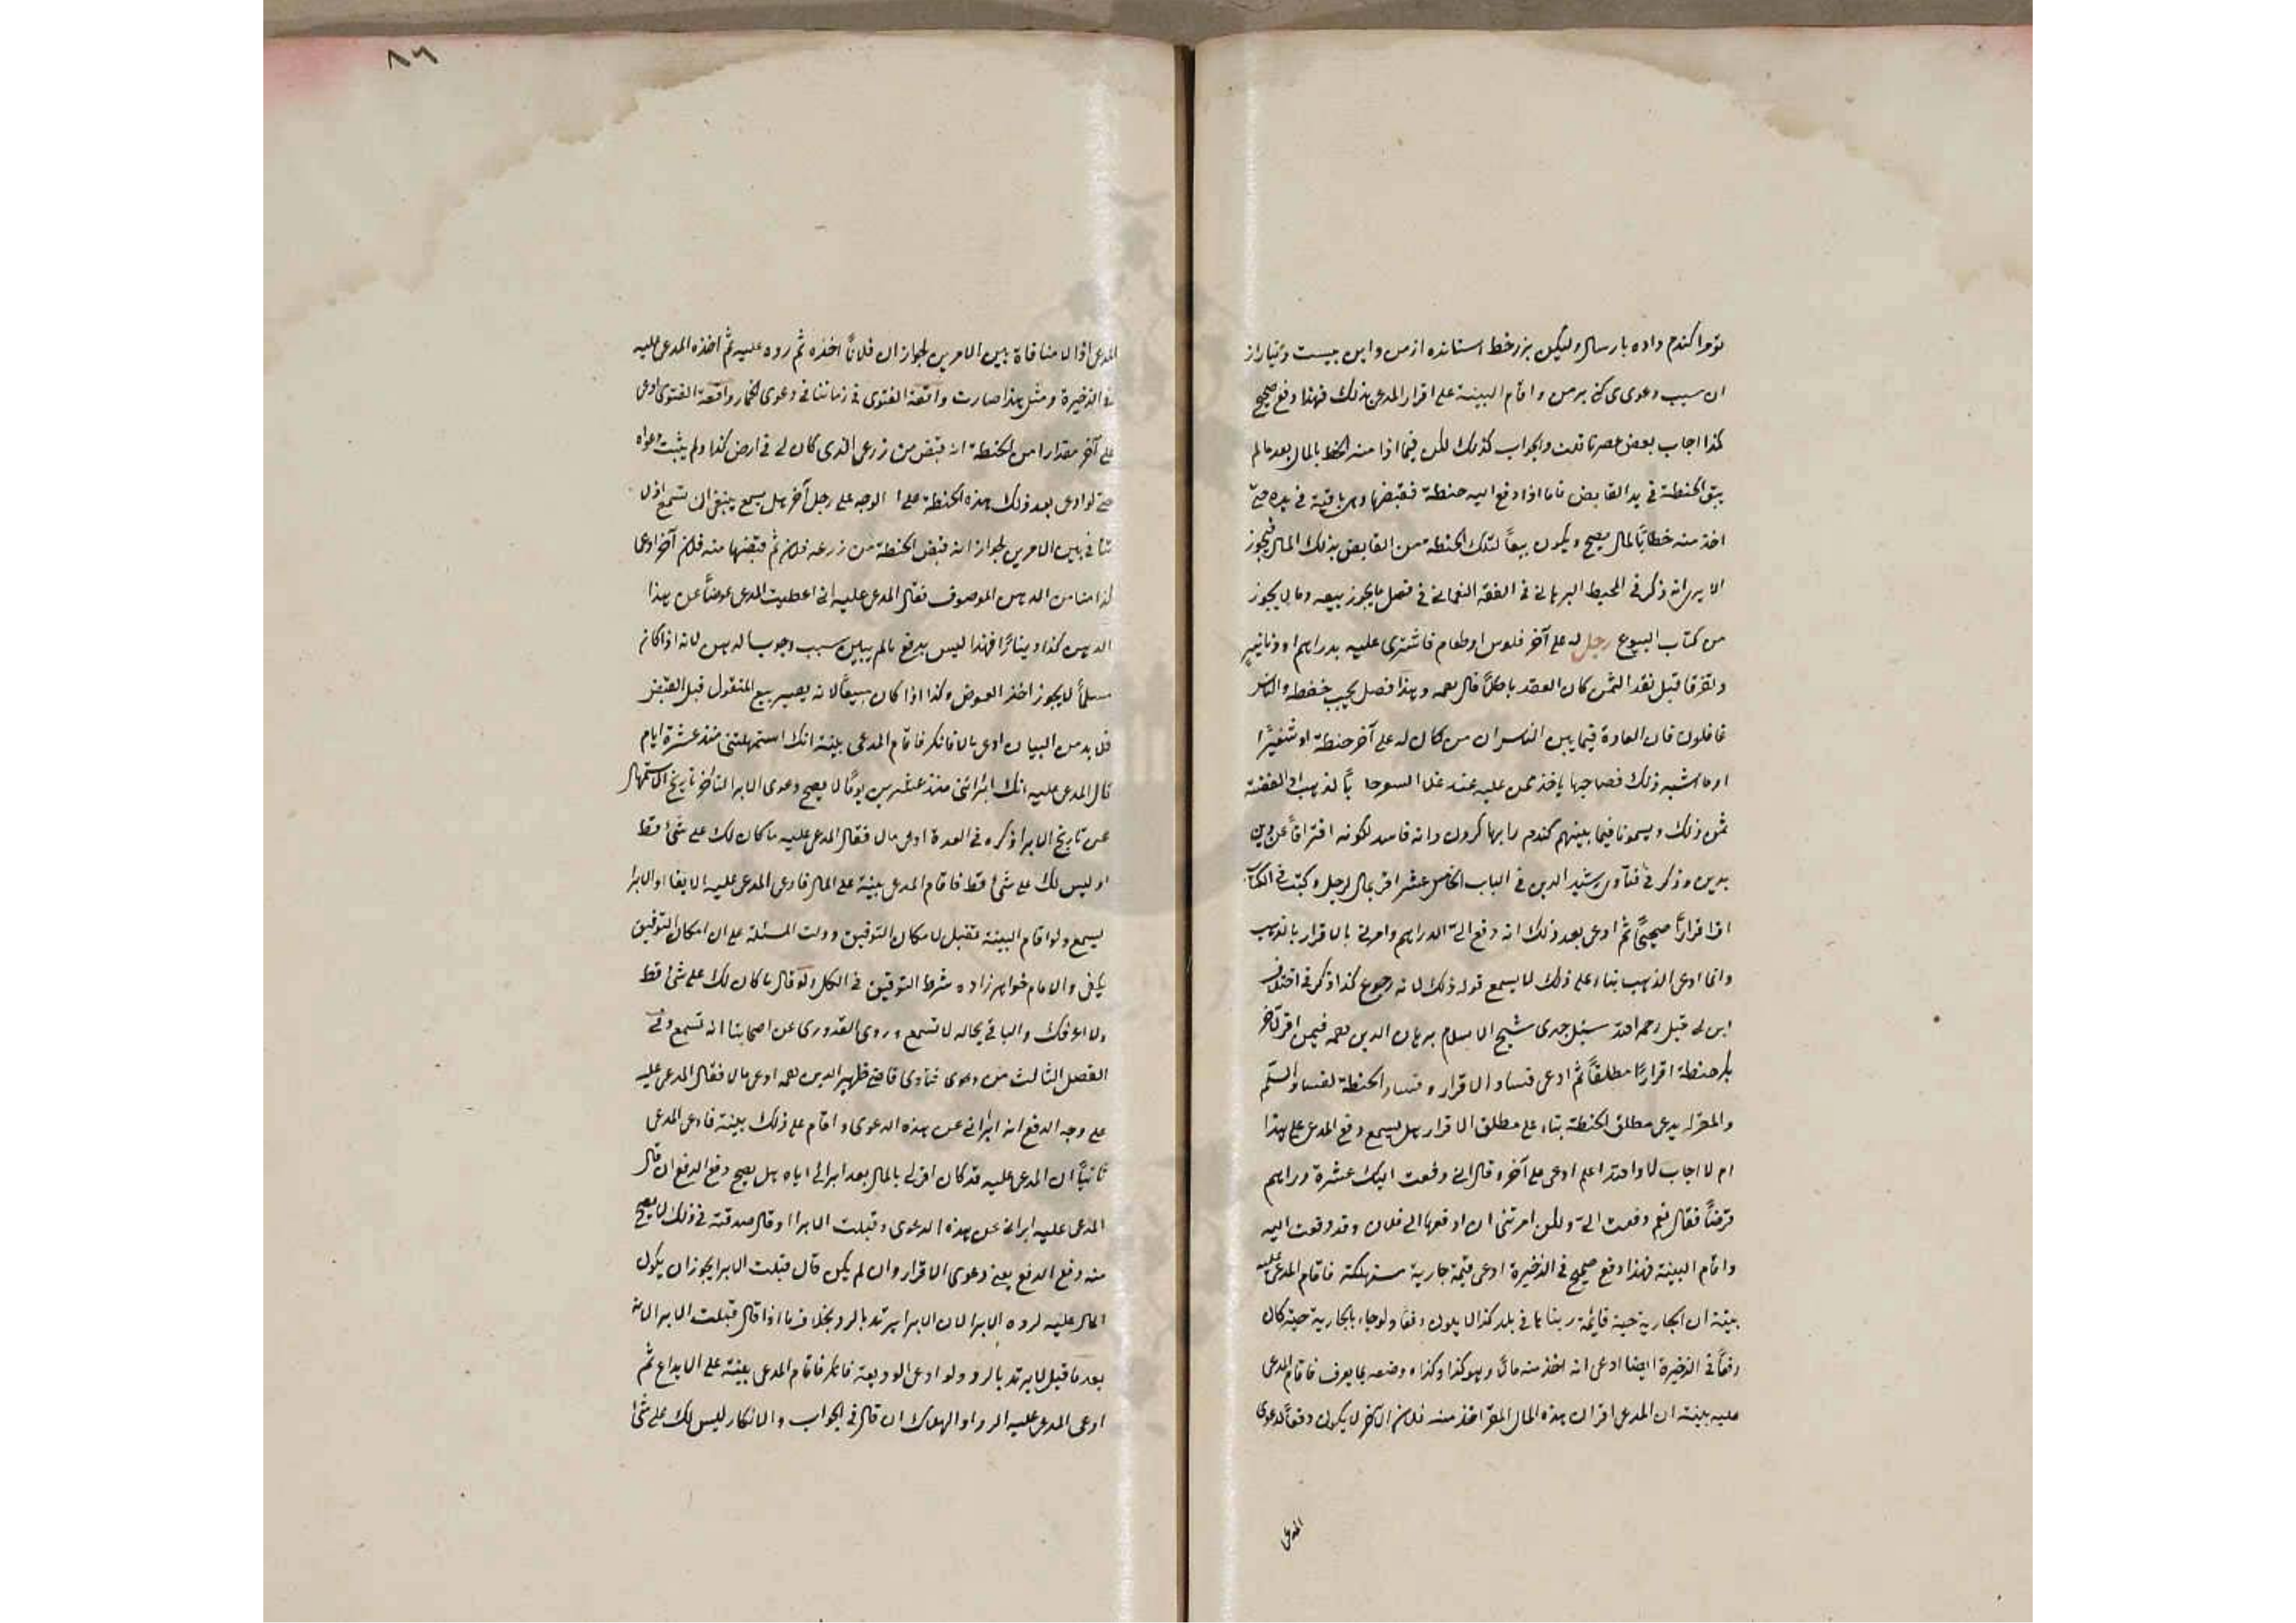 تو مرا كندم داده بار سال وليكن بزر خط استانده از من واين بيست دينار از
ان سبب دعوى مى كنى بر من واقام البينة على اقرار المدعى بذلك فهذا دفع صحيح
كذا اجاب بعض عصرنا قلت والجواب كذلك لكن فيما اذا منه الخط بالمال بعد ما لم
يبق الحنطة فى يد القابض فاما اذا دفع اليه حنطة فقبضها وهى باقية فى يده حتى
اخذ منه خطا بالمال يصح ويكون بيعاً لتلك الحنطة من القابض بذلك المال فيجوز
الا يرى انه ذكر فى المحيط البرهانى فى الفقه النعمانى فى فصل ما يجوز بيعه وما لا يجوز
من كتاب البيوع رجل له على آخر فلوس او طعام فاشترى عليه بدراهم او دنانير
وتفرقا قبل نقد الثمن كان العقد باطلاً قال رحمه وهذا فصل يجب حفظه والناس
غافلون فان العادة فيما بين الناس ان من كان له على آخر حنطة او شعيرًا
او ما اشبه ذلك فصاحبها ياخذ ممن عليه عند غلا السعر بالذهب او الفضة
ثمن ذلك ويسمونا فيما بينهم كندم را بها كردن وانه فاسد لكونه افتراقاً عن دين
بدين وذكر فى فتاوى رشيد الدين فى الباب الخامس عشر اقر بمال لرجل وكتبت فى الكتاب
اقرا قرارًا صحيحًا ثم ادعى بعد ذلك انه دفع الىّ الدراهم وامرنى بالاقرار بالذهب
وانما ادعى الذهب بناء على ذلك لا يسمع قوله ذلك لانه رجوع كذا ذكر فى اختلاف
ابن ابى ليلى رحمه الله سئل جدى شيخ الاسلام برهان الدين رحمه فيمن اقر لآخر
بكر حنطة اقرارًا مطلقاً ثم ادعى فساد الاقرار وفساد الحنطة لفساد السلم
والمقر له يدعى مطلق الحنطة بناء على مطلق الاقرار هل يسمع دفع المدعى على هذا
ام لا اجاب لا والله اعلم ادعى على آخر وقال انى دفعت اليك عشرة دراهم
قرضاً فقال نعم دفعت الىّ ولكن امرتنى ان ادفعها الى فلان وقد دفعت اليه
واقام البينة فهذا دفع صحيح فى الذخيرة ادعى قيمة جارية مستهلكة فاقام المدعى عليه
بينة ان الجارية حية قايمة ربنا ها فى بلد كذا لا يكون دفعا ولو جاء بالجارية حية كان
دفعاً فى الذخيرة ايضا ادعى انه اخذ منه مالاً وهو كذا وكذا وصفه بما يعرف فاقام المدعى
عليه بينة ان المدعى اقر ان هذه المال المقر اخذ منه فلان الآخر لا يكون دفعاً لدعوى
المدعى
٨٦
المدعى اذ لا منافاة بين الامرين لجواز ان فلاناً اخذه ثم رده عليه ثم اخذه المدعى عليه
فى الذخيرة ومثل هذا صارت واقعة الفتوى فى زماننا فى دعوى الحمار واقعة الفتوى ادعى
على آخر مقدارا من الحنطة انه قبض من زرعى الذى كان لى فى ارض كذا ولم يثبت دعواه
حتى لو ادعى بعد ذلك هذه الحنطة على الوجه على رجل آخر هل يسمع ينبغى ان تسمع اذ لا
تنافى بين الامرين لجواز انه قبض الحنطة من زرعه فلان ثم قبضها منه فلان آخر ادعى
كذا منا من الدهن الموصوف فقال المدعى عليه انى اعطيت المدعى عوضاً عن هذا
الدهن كذا دينارًا فهذا ليس بدفع ما لم يبين سبب وجوب الدهن لانه اذا كان
سلماً لا يجوز اخذ العوض وكذا اذا كان مبيعاً لانه يصير بيع المنقول قبل القبض
فلا بد من البيان ادعى مالا فانكر فاقام المدعى بينة انك استمهلتنى منذ عشرة ايام
قال المدعى عليه انك ابرأتنى منذ عشرين يومًا لا يصح دعوى الابرا لتأخر تاريخ الاستمهال
عن تاريخ الابرا ذكره فى العدة ادعى مالا فقال المدعى عليه ما كان لك على شئ قط
او ليس لك على شئ قط فاقام المدعى بينة على المال فادعى المدعى عليه الايفا او الابرا
يسمع ولو اقام البينة تقبل لامكان التوفيق ودلت المسئلة على ان امكان التوفيق
يكفى والامام خواهر زاده شرط التوفيق فى الكل ولو قال ما كان لك على شئ قط
ولا اعرفك والباقى بحاله لا تسمع وروى القدورى عن اصحابنا انه تسمع وفى
الفصل الثالث من دعوى فتاوى قاضى ظهير الدين رحمه ادعى مالا فقال المدعى عليه
على وجه الدفع انه ابرانى عن هذه الدعوى واقام على ذلك بينة فادعى المدعى
ثانياً ان المدعى عليه قد كان اقر لى بالمال بعد ابرائى اياه هل يصح دفع الدفع ان قال
المدعى عليه ابرانى عن هذه الدعوى وقبلت الابرا او قال صدقته فى ذلك لا يصح
منه دفع الدفع يعنى دعوى الاقرار وان لم يكن قال قبلت الابرا يجوز ان يكون
المال عليه لرده الابرا لان الابرا يرتد بالرد بخلاف ما اذا قال قبلت الابرا لانه
بعد ما قبل لا يرتد بالرد ولو ادعى الوديعة فانكر فاقام المدعى بينة على الايداع ثم
ادعى المدعى عليه الرد او الهلاك ان قال فى الجواب والانكار ليس لك على شئ